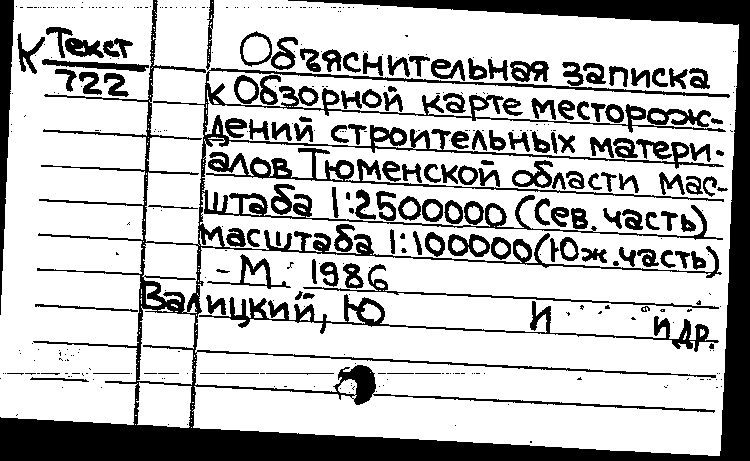 К Текст
722
Объяснительная записка
к Обзорной карте месторож-
дений строительных матери-
алов Тюменской области мас-
штаба 1:2500000 (Сев. часть)
масштаба 1:100000 (Юж. часть)
- М. 1986
Залицкий, Ю И и др.